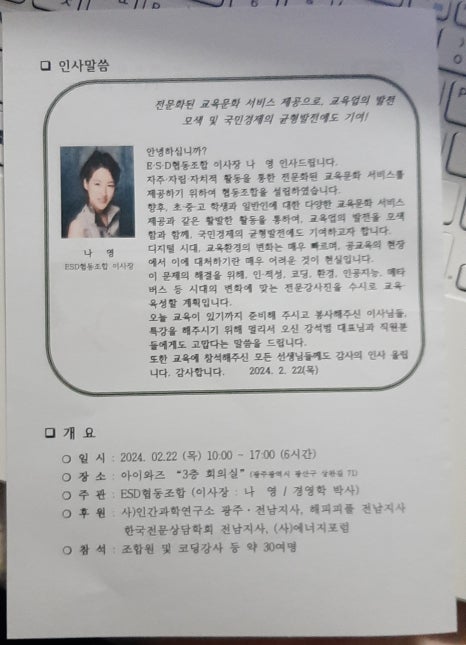 ❏ 인사말씀
전문화된 교육문화 서비스 제공으로, 교육업의 발전
모색 및 국민경제의 균형발전에도 기여!
안녕하십니까?
E·S·D협동조합 이사장 나 영 인사드립니다.
자주·자립·자치적 활동을 통한 전문화된 교육문화 서비스를
제공하기 위하여 협동조합을 설립하였습니다.
향후, 초·중·고 학생과 일반인에 대한 다양한 교육문화 서비스
제공과 같은 활발한 활동을 통하여, 교육업의 발전을 모색
함과 함께, 국민경제의 균형발전에도 기여하고자 합니다.
디지털 시대, 교육환경의 변화는 매우 빠르며, 공교육의 현장
에서 이에 대처하기란 매우 어려운 것이 현실입니다.
이 문제의 해결을 위해, 인·적성, 코딩, 환경, 인공지능, 메타
버스 등 시대의 변화에 맞는 전문강사진을 수시로 교육·
육성할 계획입니다.
오늘 교육이 있기까지 준비해 주시고 봉사해주신 이사님들,
특강을 해주시기 위해 멀리서 오신 강석범 대표님과 직원분
들에게도 고맙다는 말씀을 드립니다.
또한 교육에 참석해주신 모든 선생님들께도 감사의 인사 올립
니다. 감사합니다. 2024. 2. 22(목)
나 영
ESD협동조합 이사장
❏ 개 요
❍ 일 시 : 2024. 02.22 (목) 10:00 ~ 17:00 (6시간)
❍ 장 소 : 아이와즈 “3층 회의실” (광주광역시 광산구 상완길 71)
❍ 주 관 : ESD협동조합 (이사장 : 나 영 / 경영학 박사)
❍ 후 원 : 사)인간과학연구소 광주·전남지사, 해피피플 전남지사
한국전문상담학회 전남지사, (사)에너지포럼
❍ 참 석 : 조합원 및 코딩강사 등 약 30여명